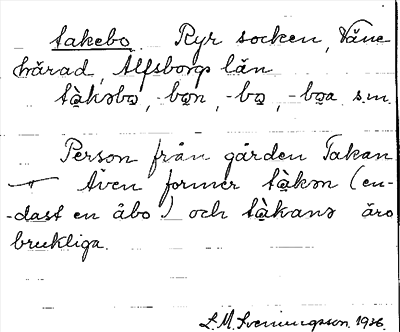 takebo Ryr socken, Väne
härad, Älfsborgs län
tàkəbo̤, -bo̤n, -bo̤, -bo̤a s.m.
Person från gården Takan
Även former tàkən (en-
-dast en åbo) och tàkanə äro
brukliga.
L. M. Svenungsson. 1926.